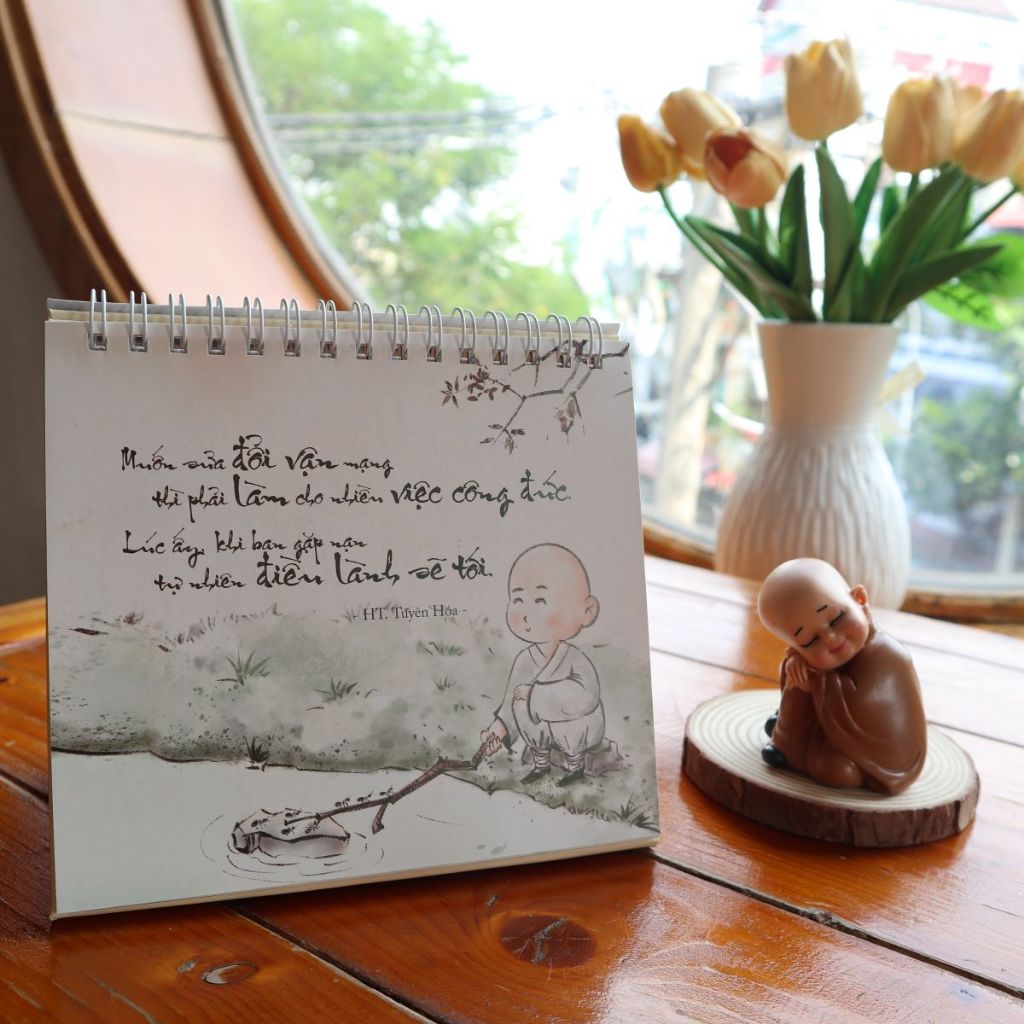 Muốn sửa đổi vận mạng
thì phải làm cho nhiều việc công đức.
Lúc ấy, khi bạn gặp nạn
tự nhiên điều lành sẽ tới.
- HT. Tuyên Hóa -